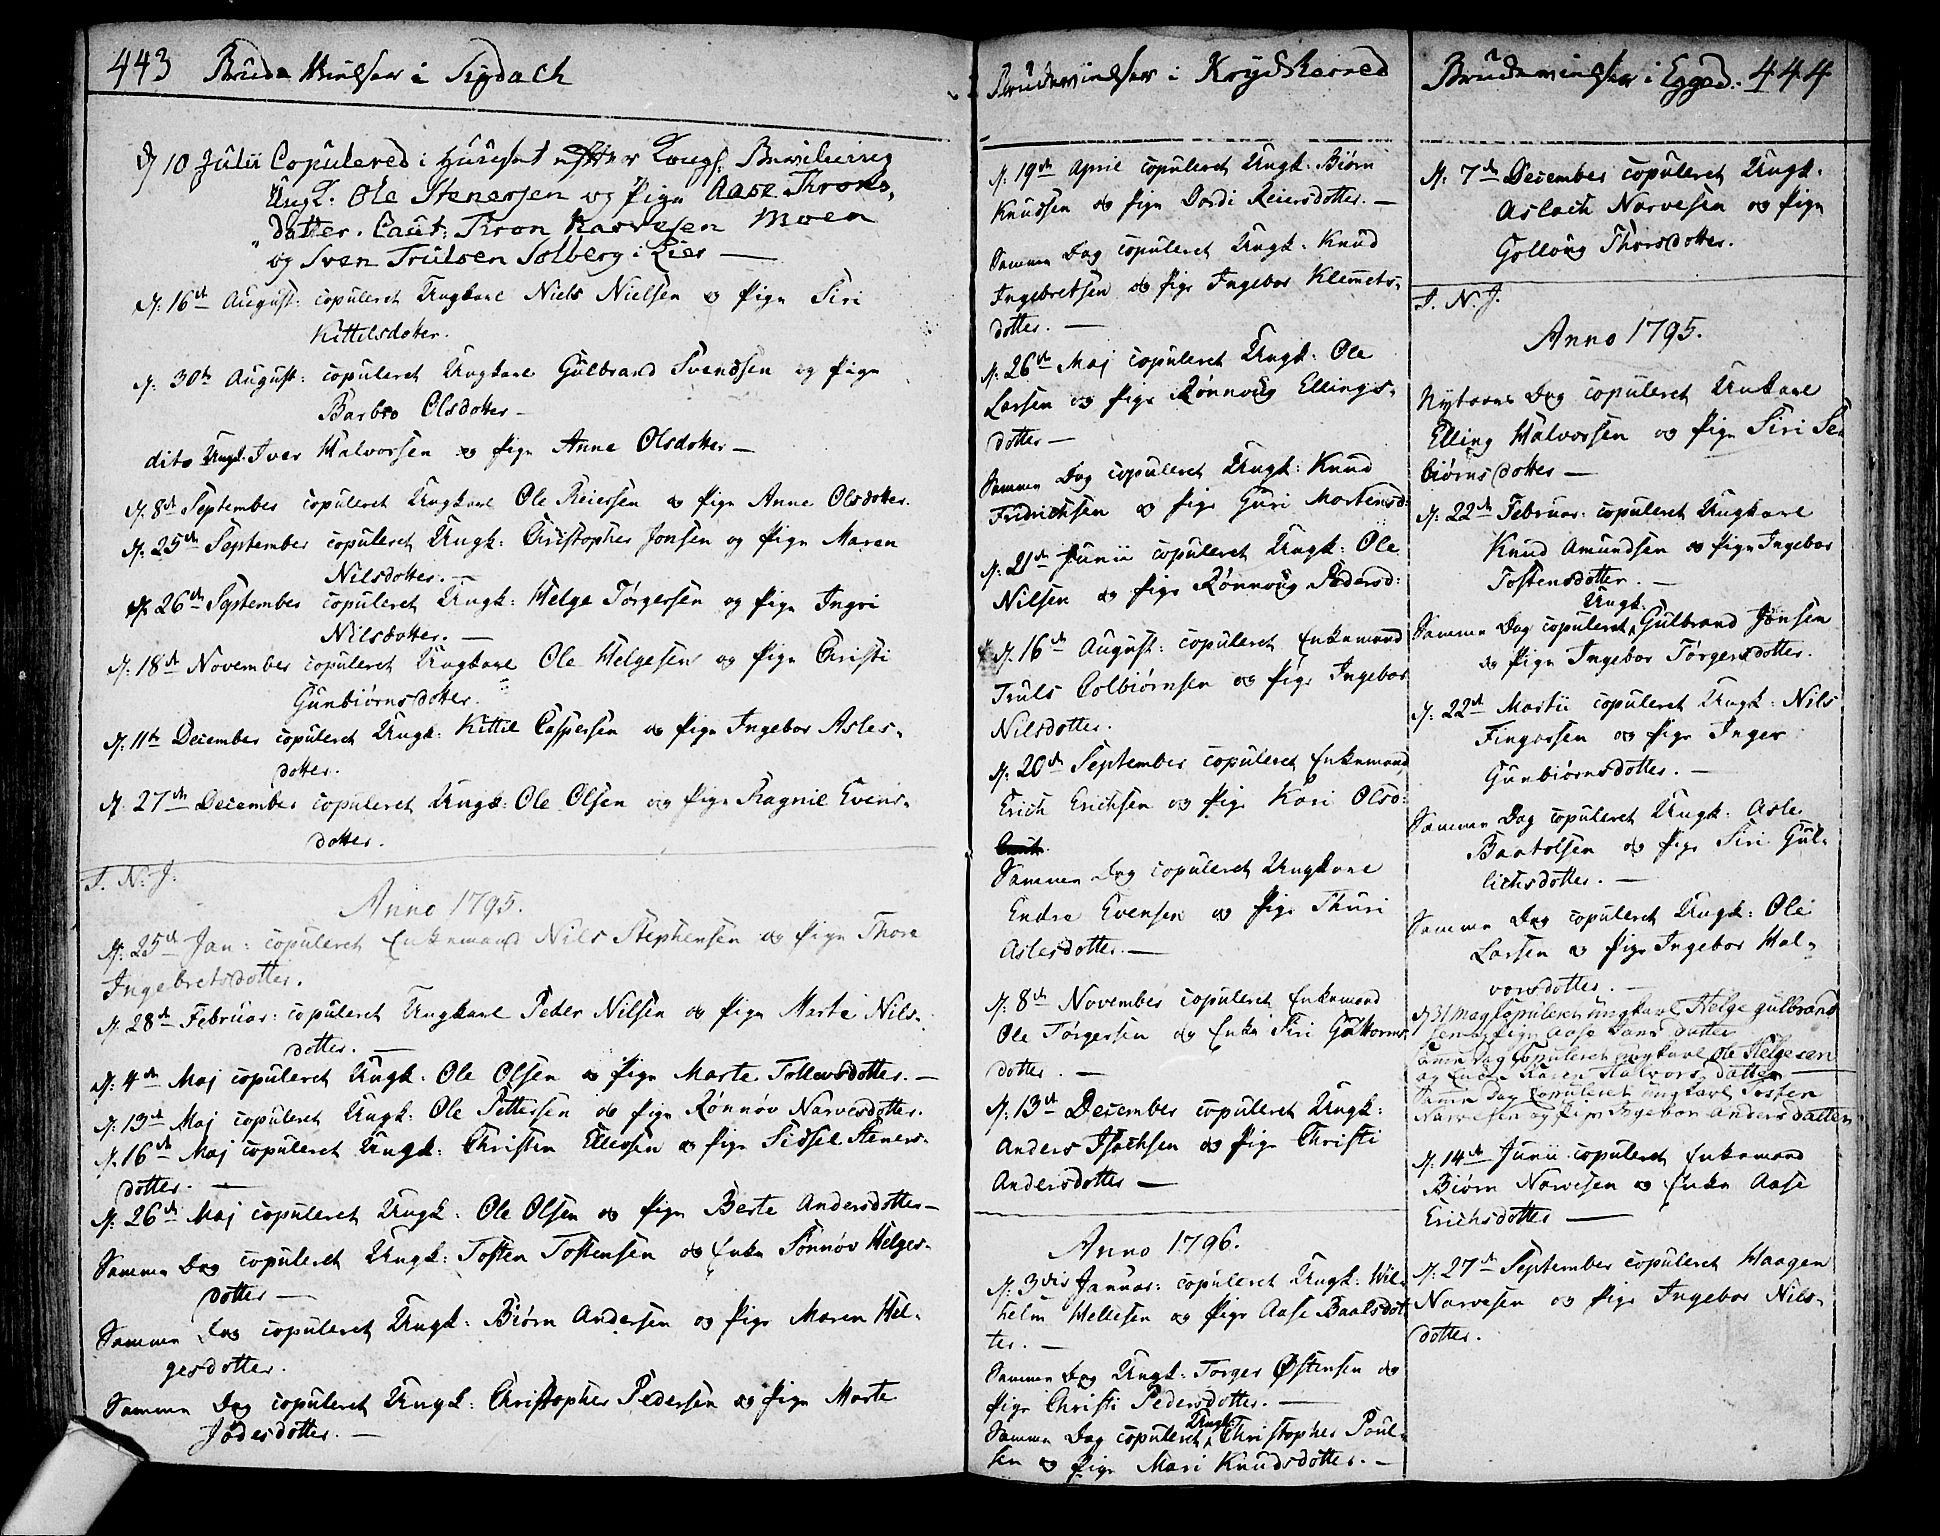 443 Brude Vielser i Sigdach
D 10 Julii Copulered i Huuset efter Kongl: Bevilning
Ungk: Ole Stenersen og Pige Aase Trons-
datter. Caut: Tron Narvesen Moen
og Sven Trulsen Solberg i Lier —
D: 16de August: copuleret Ungkarl Niels Nielsen og Pige Siri
Kittilsdotter.
D: 30te August: copuleret Ungkarl Gulbrand Svendsen og Pige
Barbro Olsdotter —
dito Ungk. Iver Halvorsen og Pige Anne Olsdotter —
D. 8de September copuleret Ungkarl Ole Reiersen og Pige Anne Olsdotter.
D. 25de September copuleret Ungk: Christopher Jonsen og Pige Maren
Nilsdotter. —
D. 26de September copuleret Ungk: Helge Torgersen og Pige Ingri
Nilsdotter. —
D. 18de November copuleret Ungkarl Ole Helgesen og Pige Christi
Gunbiørnsdotter.
D. 11te December copuleret Ungk: Kittil Caspersen og Pige Ingebor Asles-
dotter.
D. 27de December copuleret Ungk: Ole Olsen og Pige Ragnil Evens-
dotter.
I. N. J.
Anno 1795.
D. 25de Jan: copuleret Enkemand Nils Stephensen og Pige Thore
Ingebretsdotter.
D. 28de Februar: copuleret Ungkarl Peder Nilsen og Pige Marte Nils-
dotter. —
D. 4de Maj copuleret Ungk: Ole Olsen og Pige Marte Tollevsdotter. —
D. 13de Maj copuleret Ungk: Ole Pettersen og Pige Rønnøv Narvesdotter.
D. 16de Maj copuleret Ungk: Christen Ellevsen og Pige Sidsel Steners-
dotter. —
D. 26de Maj copuleret Ungk: Ole Olsen og Pige Berte Andersdotter —
Samme Dag copuleret Ungk: Tosten Tostensen og Enke Sønnøv Helges-
dotter —
Samme Dag copuleret Ungk: Biørn Andersen og Pige Maren Hel-
gesdotter.
Samme Dag copuleret Ungk: Christopher Pedersen og Pige Marte
Jødesdotter. —
Brudevielser i Krydsherred
D. 19de April copuleret Ungk: Biørn
Knudsen og Pige Dordi Reiersdotter. —
Samme Dag copuleret Ungk: Knud
Ingebretsen og Pige Ingebor Klemets-
dotter. —
D. 26de Maj copuleret Ungk: Ole
Larsen og Pige Rønnoug Ellings-
dotter —
Samme Dag copuleret Ungk: Knud
Fridrichsen og Pige Guri Mortensd:
D. 21de Junii copuleret Ungk: Ole
Nilsen og Pige Rønnoug Pedersd:
D. 16de August: copuleret Enkemand
Truls Colbiørnsen og Pige Ingebor
Nilsdotter.
D. 20de September copuleret Enkemand
Erich Erichsen og Pige Kari Olsd:
Samme Dag copuleret Ungkarl
Endre Evensen og Pige Thuri
Aslesdotter. —
D. 8de November copuleret Enkemand
Ole Torgersen og Enke Siri Guttorms-
dotter. —
D. 13de December copuleret Ungk:
Anders Isachsen og Pige Christi
Andersdotter —
Anno 1796.
D. 3die Januar: copuleret Ungk: Wil-
helm Hellesen og Pige Aase Baalsdot-
ter. —
Samme Dag Ungk: Torger Østensen og
Pige Christi Pedersdotter. —
Samme Dag copuleret Ungk: Christopher Poul-
sen og Pige Mari Knudsdotter. —
Brudevielser i Egged. 444
D. 7de December copuleret Ungk:
Aslach Narvesen og Pige
Golloug Thorsdotter.
I. N. J.
Anno 1795.
Nytaars Dag copuleret Unkarl
Elling Halvorsen og Pige Siri Se-
biørnsdotter —
D. 22de Februar: copuleret Ungkarl
Knud Amundsen og Pige Ingebor
Tostensdotter. —
Samme Dag copuleret Ungk. Gulbrand Jonsen
og Pige Ingebor Torgersdotter.
D. 22de Martii copuleret Ungk: Nils
Fingarsen og Pige Inger
Gunbiørnsdotter. —
Samme Dag copuleret Ungk: Asle
Baartolsen og Pige Siri Gul-
lichsdotter. —
Samme Dag copuleret Ungk: Ole
Larsen og Pige Ingebor Hal-
vorsdotter. —
D 31 may Copuleret ungkarl Helge gulbrand
sen og Pige Aase datter
Samme dag Copuleret ungkarl ole Helgesen
og Enken Karen Halvors datter —
Samme dag Copuleret ungkarl Tosten
Narvesen og Pige Ingebor anders datter
D. 14de Junii copuleret Enkemand
Biørn Narvesen og Enke Aase
Erichsdotter —
D: 27de September copuleret Haagen
Narvesen og Pige Ingebor Nils-
dotter.